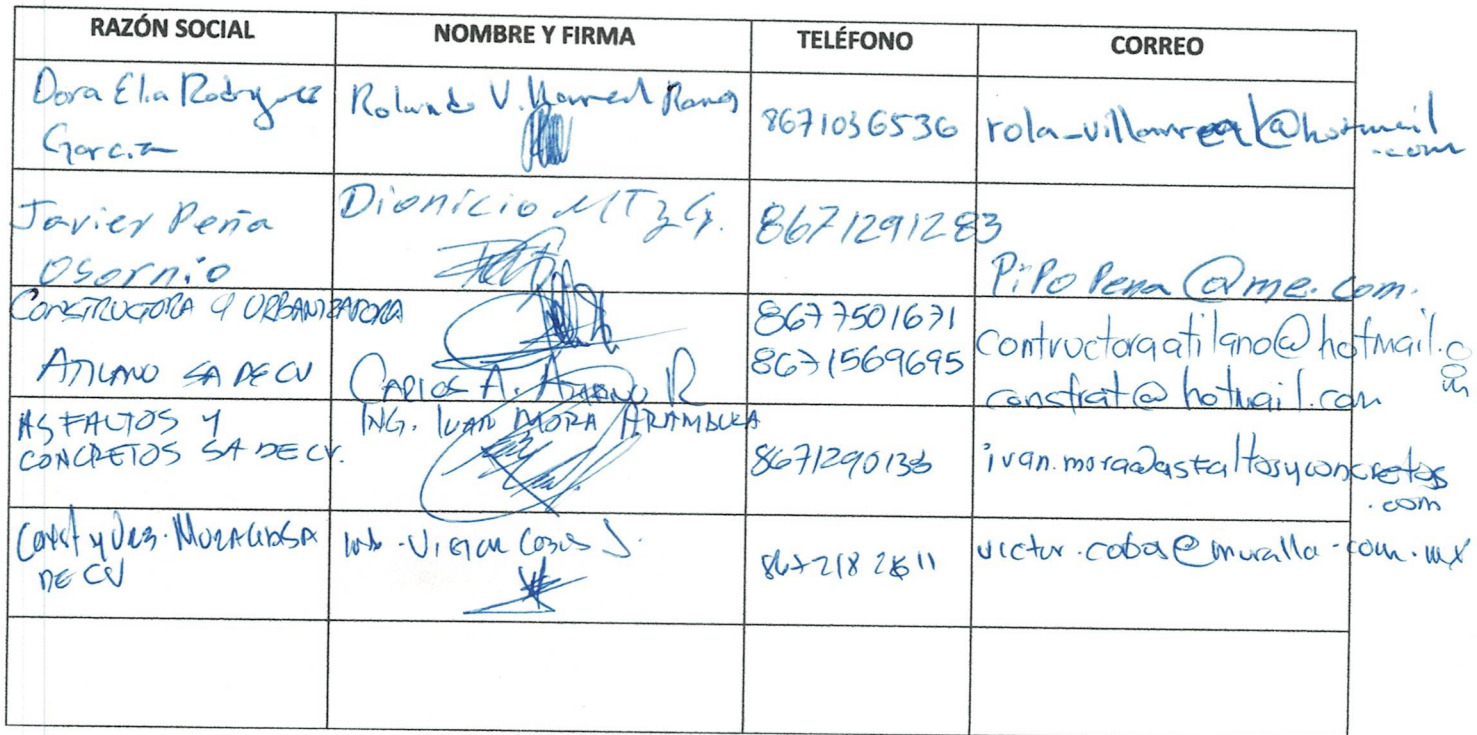 RAZÓN SOCIAL NOMBRE Y FIRMA TELÉFONO CORREO
Dora Elia Rodriguez
Garcia
Rolando Villarreal Ramos
8671036536
rola_villarreal@hotmail
.com
Javier Peña
Osornio
Dionicio MTz G.
8671291283
PiPo Pena@me.com.
CONSTRUCTORA Y URBANIZADORA
ATILANO SA DE CV
CARLOS A. ATILANO R
8677501671
8671569695
contructoraatilano@hotmail.com
constrat@hotmail.com
ASFALTOS Y
CONCRETOS SA DE CV.
ING. IVAN MORA ARAMBULA
8671290138
ivan.mora@asfaltosyconcretos
.com
Const y Urb.
DE CV
ING. VICTOR J.
867218
victor.cobos@muralla.com.mx